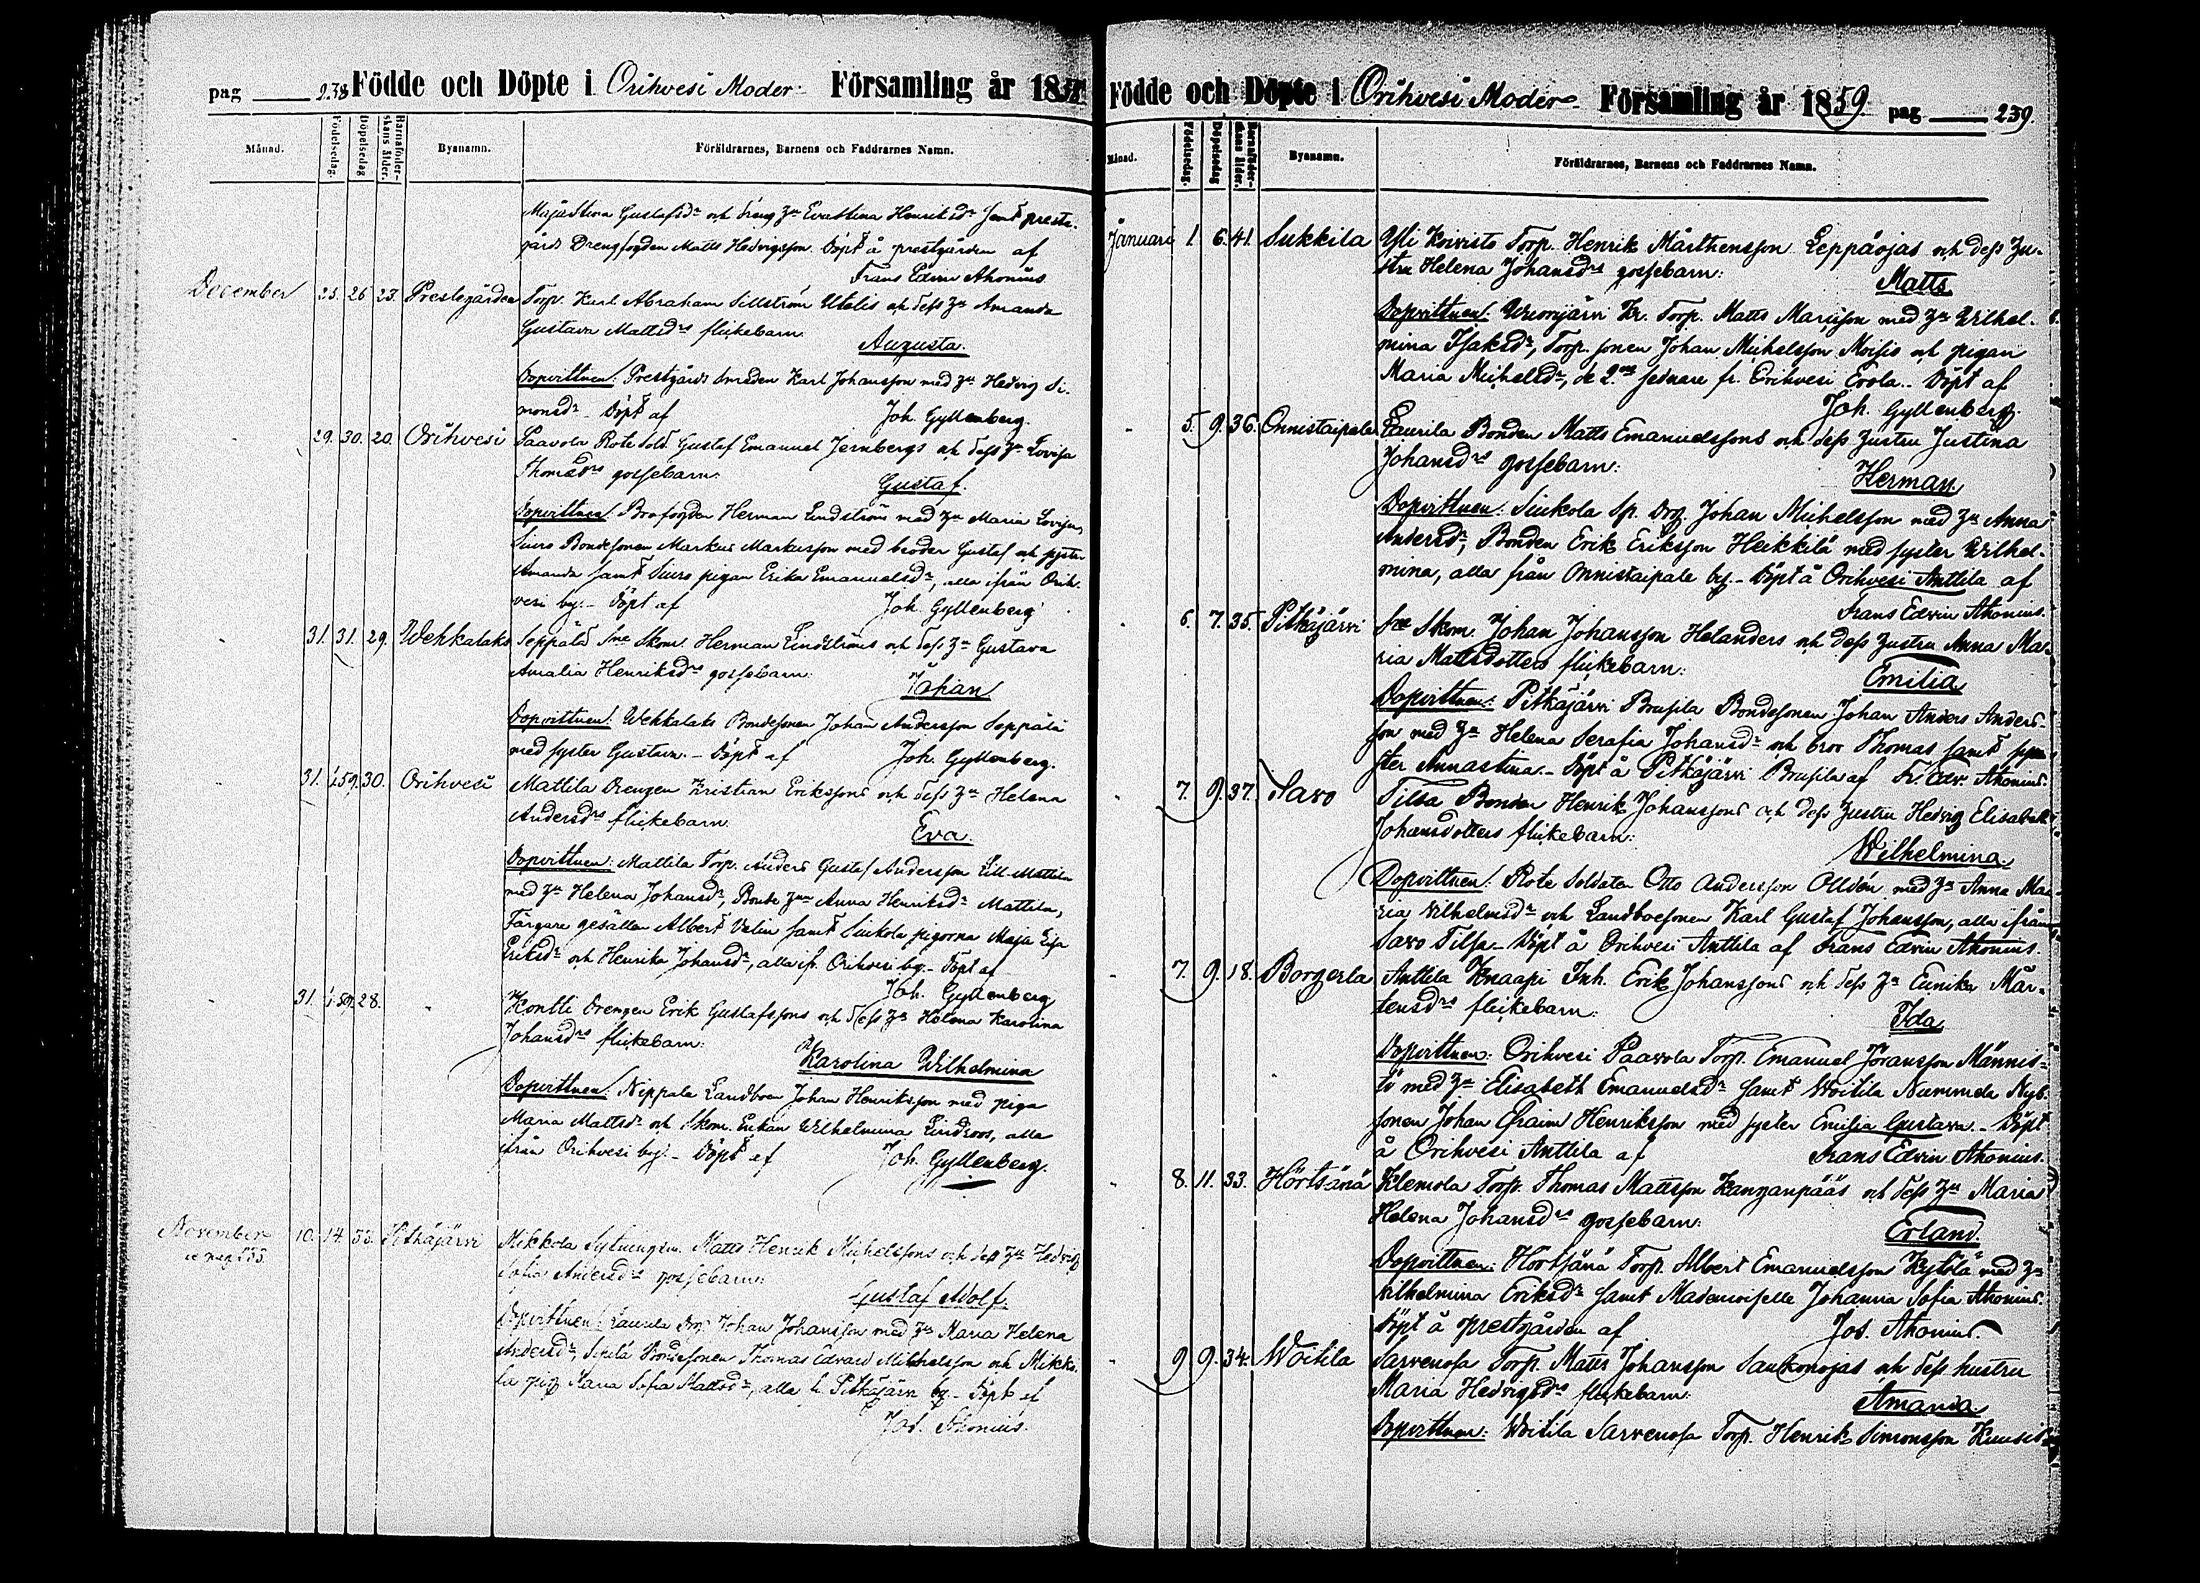 pag 238 Födde och Döpte i Orihvesi Moder- Församling år 1858
Månad. Födelsedag. Döpelsedag Barnaföderskans ålder. Byanamn. Föräldrarnes, Barnens och Faddrarnes Namn.
Maja Stina Gustafsdr och Zn Evastina Henriksdr samt preste-
gårds Drengfogden Matts Hedvigsson. Döpt å prestgården af
Frans Edvin Ahonius
December 25. 26 23. Prestegården Torp. Karl Abraham Sillström Utelis och dess Za Amanda
Gustava Mattsdrs flickebarn
Augusta.
Dopvittnen: Prestgårds Smeden Karl Johansson med Za Hedvig Si-
monsdr. Döpt af Joh. Gyllenberg.
29. 30. 20. Orihvesi Paavola Rote Sold Gustaf Emanuel Jernbergs och dess Za Lovisa
Thomasdrs gossebarn.
Gustaf.
Dopvittnen: Brofogden Herman Lindström med Za Maria Lovisa,
Siuro Bondesonen Markus Markusson med broder Gustaf och syster
Amanda samt Siuro pigan Erika Emanuelsdr, alla ifrån Orih-
vesi by. Döpt af Joh. Gyllenberg
31. 31. 29. Wehkalaks Seppälä Sne Skom. Herman Lindströms och dess Za Gustava
Amalia Henriksdrs gossebarn.
Johan
Dopvittnen: Wehkalaks Bondesonen Johan Andersson Seppälä
med syster Gustava. Döpt af Joh. Gyllenberg.
31. 1/1 59. 30. Orihvesi Mattila Drengen Kristian Erikssons och dess Za Helena
Andersdrs flickebarn.
Eva.
Dopvittnen: Mattila Torp. Anders Gustaf Andersson Lill-Mattila
med Za Helena Johansdr, Bonde Zn Anna Henriksdr Mattila,
Färgare gesällen Albert Valin samt Siukola pigorna Maja Lisa
Eriksdr och Henrika Johansdr, alla fr. Orihvesi by. Döpt af
Joh. Gyllenberg
31. 1/1 59. 28. Kontti Drengen Erik Gustafssons och dess Za Helena Karolina
Johansdrs flickebarn:
Karolina Wilhelmina
Dopvittnen: Nippala Landboen Johan Henriksson med piga
Maria Mattsdr och Skom. Enkan Wilhelmina Lindroos, alla
ifrån Orihvesi by. Döpt af Joh. Gyllenberg.
November 10. 14. 33. Pitkäjärvi Mikkola Sytningsm. Matts Henrik Michelssons och dess Za Hedvig
se pag 233. Sofia Andersdrs gossebarn:
Gustaf Adolf.
Dopvittnen: Laurila Drg Johan Johansson med Za Maria Helena
Andersdr, Bondesonen Thomas Edvard Michelsson och Mikko-
la pig. Maria Sofia Mattsdr, alla fr. Pitkäjärvi by. Döpt af
Jos. Ahonius.
Födde och Döpte i Orihvesi Moder- Församling år 1859. pag 239.
Månad. Födelsedag. Döpelsedag Barnaföderskans ålder. Byanamn. Föräldrarnes, Barnens och Faddrarnes Namn.
Januari 1. 6. 41. Sukkila Yli Koivisto Torp. Henrik Mårthensson Leppäojas och dess Zu-
stru Helena Johansdrs gossebarn:
Matts
Dopvittnen: Wuorijärvi Kr. Torp. Matts Mariesson med Za Wilhel-
mina Isaksdr, Torp. sonen Johan Michelsson Moisio och pigan
Maria Michelsdr, de 2ne sednare fr. Orihvesi Erola. Döpt af
Joh. Gyllenberg.
5. 9. 36. Onnistaipale Laurila Bonden Matts Emanuelssons och dess Zustru Justina
Johansdrs gossebarn:
Herman
Dopvittnen: Siukola Sp. Drg. Johan Michelsson med Za Anna
Andersdr, Bonden Erik Eriksson Heikkilä med syster Wilhel-
mina, alla från Onnistaipale by. Döpt å Orihvesi Anttila af
Frans Edvin Ahonius.
6. 7. 35. Pitkäjärvi Sne Skom. Johan Johansson Helanders och dess Zustru Anna Ma-
ria Mattsdotters flickebarn:
Emilia
Dopvittnen: Pitkäjärvi Brusila Bondesonen Johan Anders Anders-
son med Za Helena Serafia Johansdr och bror Thomas samt sy-
ster Annastina. Döpt å Pitkäjärvi Brusila af Fr. Edv. Ahonius.
7. 9. 37. Savo Tilsa Bonden Henrik Johanssons och dess Zustru Hedvig Elisabeth
Johansdotters flickebarn:
Wilhelmina.
Dopvittnen: Rote Soldaten Otto Andersson Olldén med Za Anna Ma-
ria Vilhelmsdr och Landboesonen Karl Gustaf Johansson, alla ifrån
Savo Tilsa. Döpt å Orihvesi Anttila af Frans Edvin Ahonius.
7. 9. 18. Borgerla Anttila Knaapi Inh. Erik Johanssons och dess Za Eunika Mår-
tensdrs flickebarn:
Ida
Dopvittnen: Orihvesi Paavola Torp. Emanuel Jöransson Männis-
tö med Za Elisabeth Emanuelsdr samt Woitila Nummela Nyb.
sonen Johan Efraim Henriksson med syster Emilia Gustava. Döpt
å Orihvesi Anttila af Frans Edvin Ahonius.
8. 11. 33. Hörtsänä Klemola Torp. Thomas Mattsson Kanganpääs och dess Za Maria
Helena Johansdrs gossebarn:
Erland.
Dopvittnen: Hörtsänä Torp. Albert Emanuelsson Kytölä med Za
Vilhelmina Eriksdr samt Mademoiselle Johanna Sofia Ahonius.
Döpt å prestgården af Jos. Ahonius.
9 9. 34. Woitila Sarvenosa Torp. Matts Johansson Saukonojas och dess hustru
Maria Hedvigsdrs flickebarn:
Amanda.
Dopvittnen: Woitila Sarvenosa Torp. Henrik Simonsson